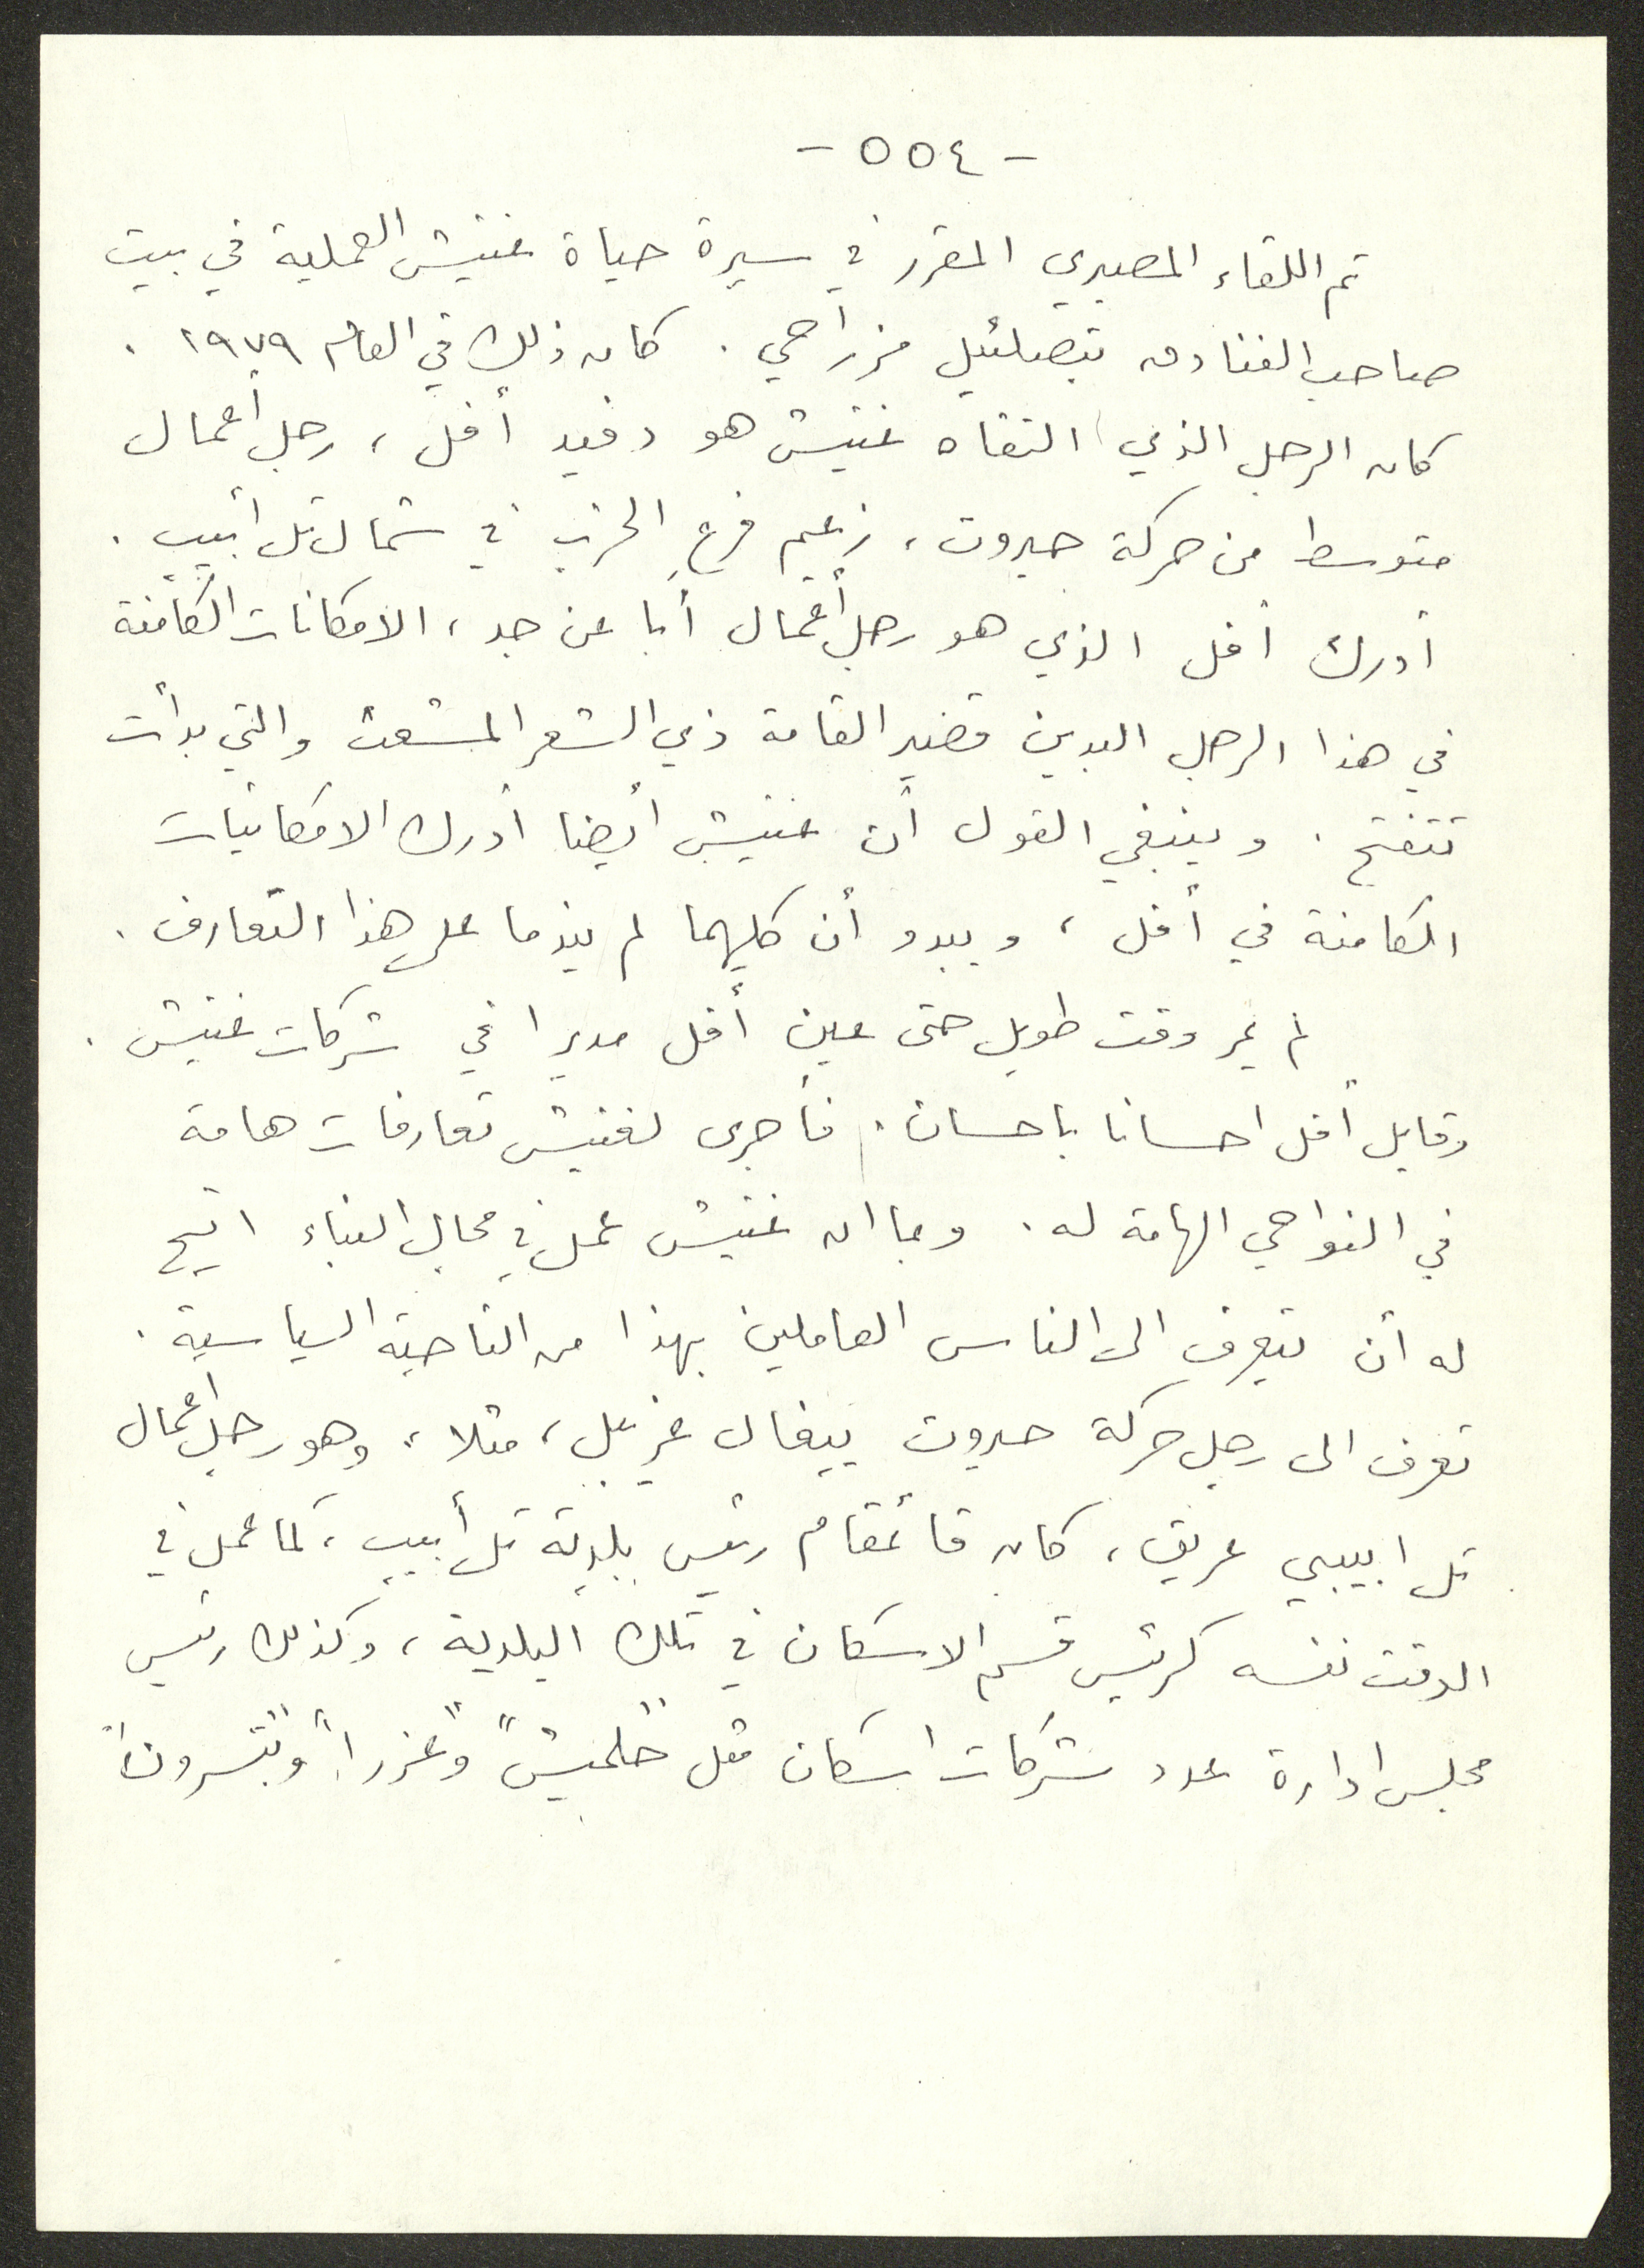 - ٥٥٤ -
تم اللقاء المصيري المقرر في سيرة حياة غنيش العملية في بيت
صاحب الفنادق بتصلئيل مزراحي . كان ذلك في العام ١٩٧٩ .
كان الرجل الذي التقاه غنيش هو دفيد أفل ، رجل أعمال
متوسط من حركة حيروت ، زعيم فرع الحزب في شمال تل أبيب .
أدرك أفل الذي هو رجل أعمال أبا عن جد ، الامكانات الكامنة
في هذا الرجل البدين قصير القامة ذي الشعر المشعث والتي بدأت
تتفتح . وينبغي القول أن غنيش أيضا أدرك الامكانيات
الكامنة في أفل ، ويبدو أن كليهما لم يندما على هذا التعارف .
لم يمر وقت طويل حتى عين أفل مديرا في شركات غنيش .
وقابل أفل احسانا باحسان . فأجرى لغنيش تعارفات هامة
في النواحي الهامة له . وبما ان غنيش عمل في مجال البناء اتيح
له أن يتعرف الى الناس العاملين بهذا من الناحية السياسية .
تعرف الى رجل حركة حيروت ييغال غريبل ، مثلا ، وهو رجل أعمال
تل ابيبي عريق ، كان قائمقام رئيس بلدية تل أبيب ، كما عمل في
الوقت نفسه كرئيس قسم الاسكان في تلك البلدية ، وكذلك رئيس
مجلس ادارة عدد شركات اسكان مثل "حلميش" و"عزرا" و"بتسرون"